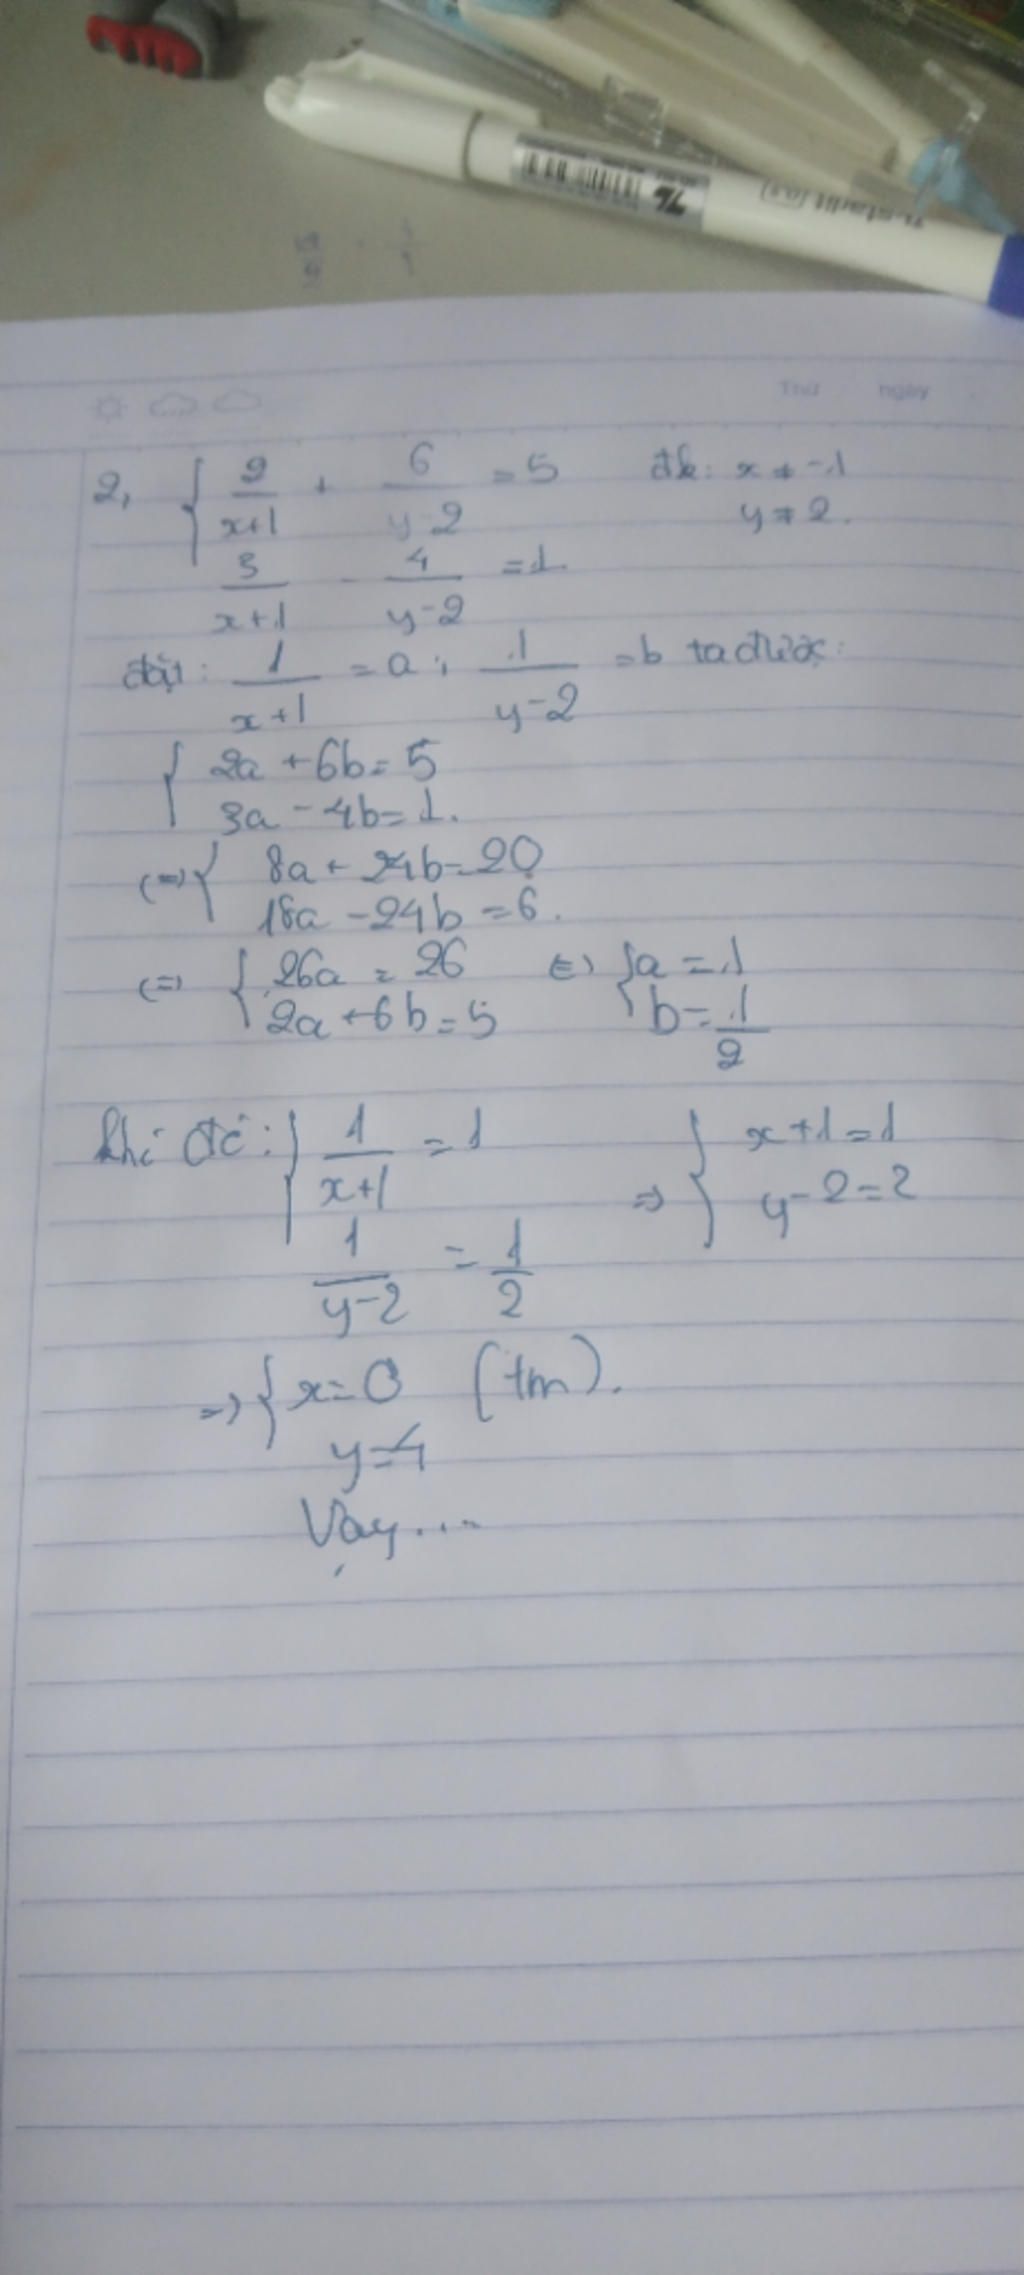 Thứ ngày
2, { 2/(x+1) + 6/(y-2) = 5 đk: x ≠ -1
y ≠ 2.
3/(x+1) - 4/(y-2) = 1
đặt: 1/(x+1) = a; 1/(y-2) = b ta được:
{ 2a + 6b = 5
3a - 4b = 1.
(=) { 8a + 24b = 20
18a - 24b = 6.
(=) { 26a = 26 (=) { a = 1
2a + 6b = 5 b = 1/2
khi đó: { 1/(x+1) = 1 => { x+1=1
1/(y-2) = 1/2 y-2=2
=> { x=0 (tm).
y=4
Vậy...